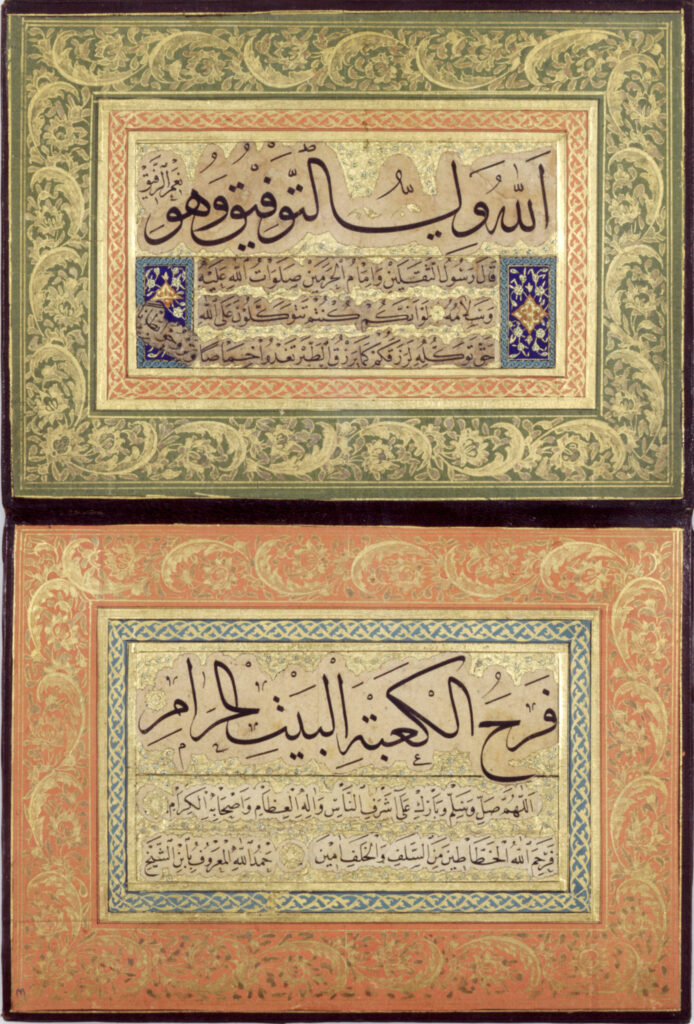 اَللهُ وَلِيُّ التَّوْفِيقِ وَهُوَ نِعْمَ الرَّفِيقُ
قَالَ رَسُولُ الثَّقَلَيْنِ وَاِمَامُ الْحَرَمَيْنِ صَلَوَاتُ اللهِ عَلَيْهِ
وَسَلَامُهُ لَوْ اَنَّكُمْ كُنْتُمْ تَتَوَكَّلُونَ عَلَى اللهِ
حَقَّ تَوَكُّلِهِ لَرَزَقَكُمْ كَمَا يَرْزُقُ الطَّيْرَ تَغْدُو اَخْمَاصًا
فَرَحُ الْكَعْبَةِ الْبَيْتِ الْحَرَامِ
اَللّٰهُمَّ صَلِّ وَسَلِّمْ وَبَارِكْ عَلَى اَشْرَفِ النَّاسِ وَاٰلِهِ الْعِظَامِ وَاَصْحَابِهِ الْكِرَامِ
فَرَحِمَ اللهُ الْخَطَّاطِينَ مِنَ السَّلَفِ وَالْخَلَفِ اٰمِينَ حَمْدُ اللهِ الْمَعْرُوفُ بِابْنِ الشَّيْخِ